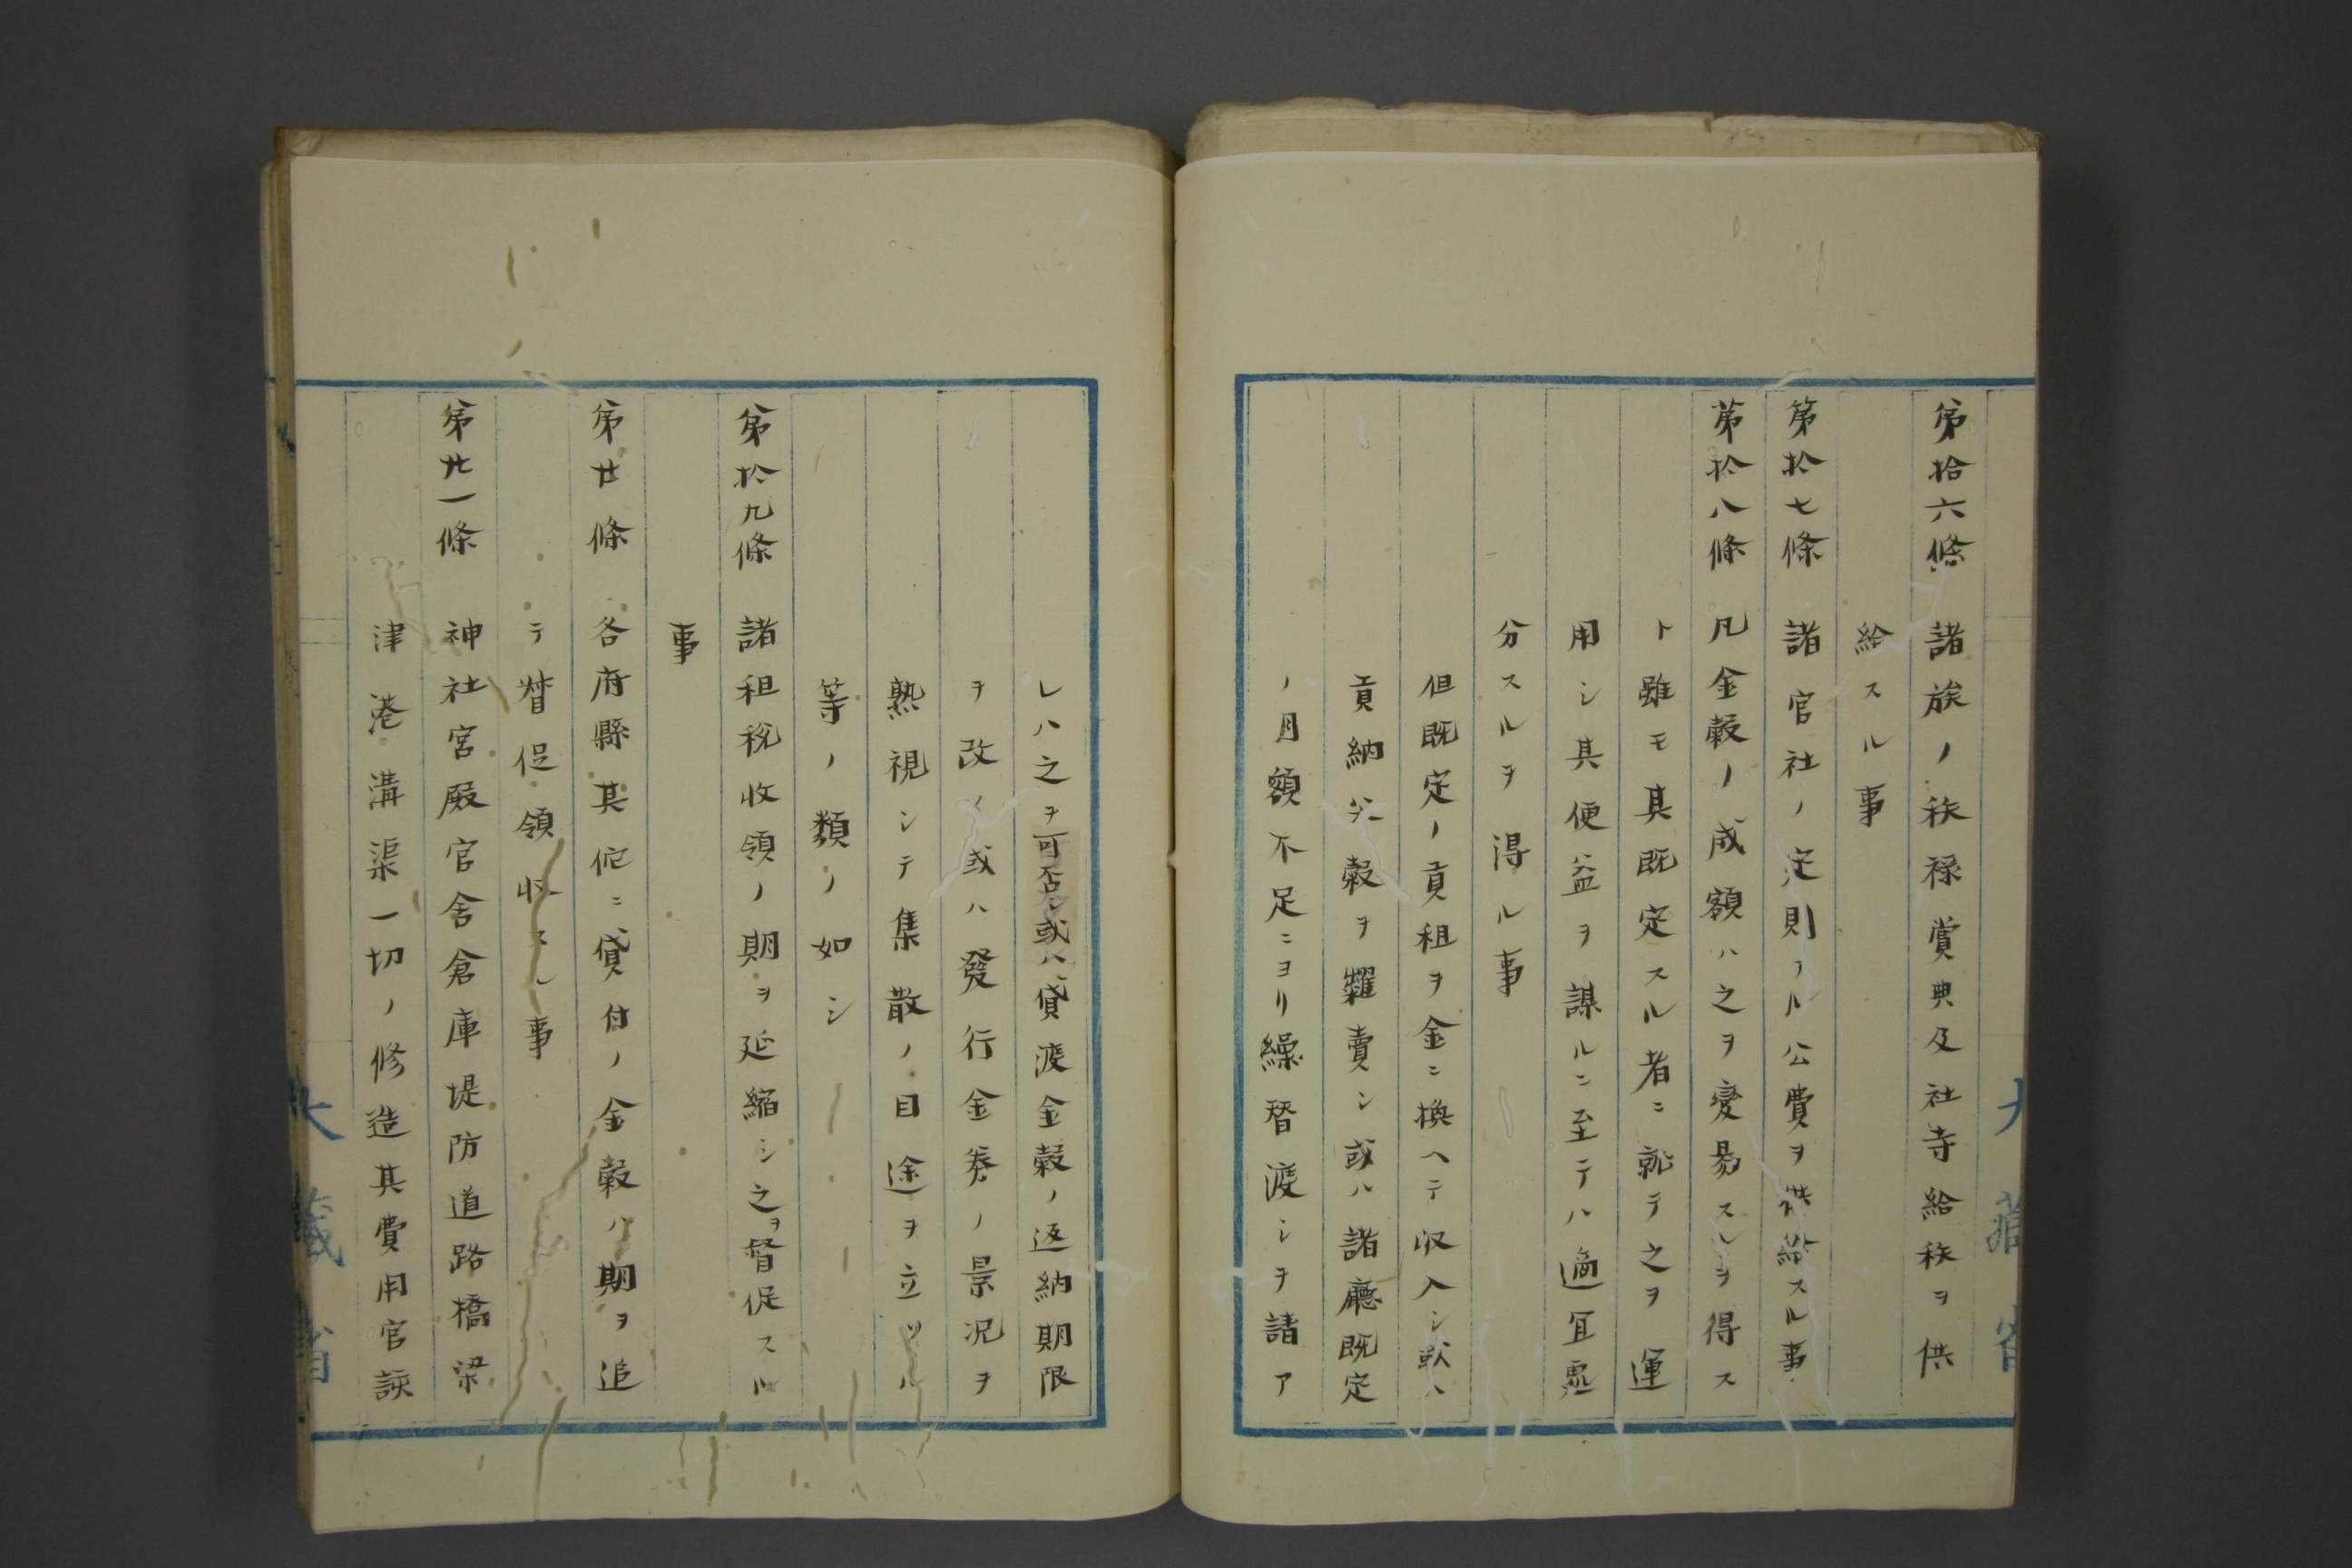 第拾六條 諸族ノ秩禄賞典及社寺給秩ヲ供
給スル事
第拾七條 諸官社ノ定則アル公費ヲ供給スル事
第拾八條 凡金穀ノ成額ハ之ヲ変易スルヲ得ス
ト雖モ其既定スル者ニ就テ之ヲ運
用シ其便益ヲ謀ルニ至テハ適宜處
分スルヲ得ル事
但既定ノ貢租ヲ金ニ換ヘテ収入シ或ハ
貢納ノ穀ヲ糶賣シ或ハ諸廳既定
ノ月額不足ニヨリ繰替渡シヲ請ア
レハ之ヲ可否シ或ハ貸渡金穀ノ返納期限
ヲ改メ或ハ發行金券ノ景況ヲ
熟視シテ集散ノ目途ヲ立ツル
等ノ類ノ如シ
第拾九條 諸租税收領ノ期ヲ延縮シ之ヲ督促スル
事
第廿條 各府縣其他ニ貸付ノ金穀ハ期ヲ追
テ督促領收スル事
第廿一條 神社宮殿官舎倉庫堤防道路橋梁
津港溝渠一切ノ修造其費用官該
大藏省
大藏省